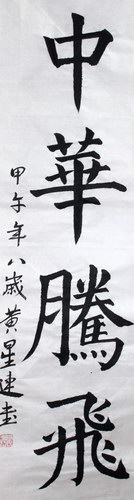 中華騰飛
甲午年八歲黃星建書